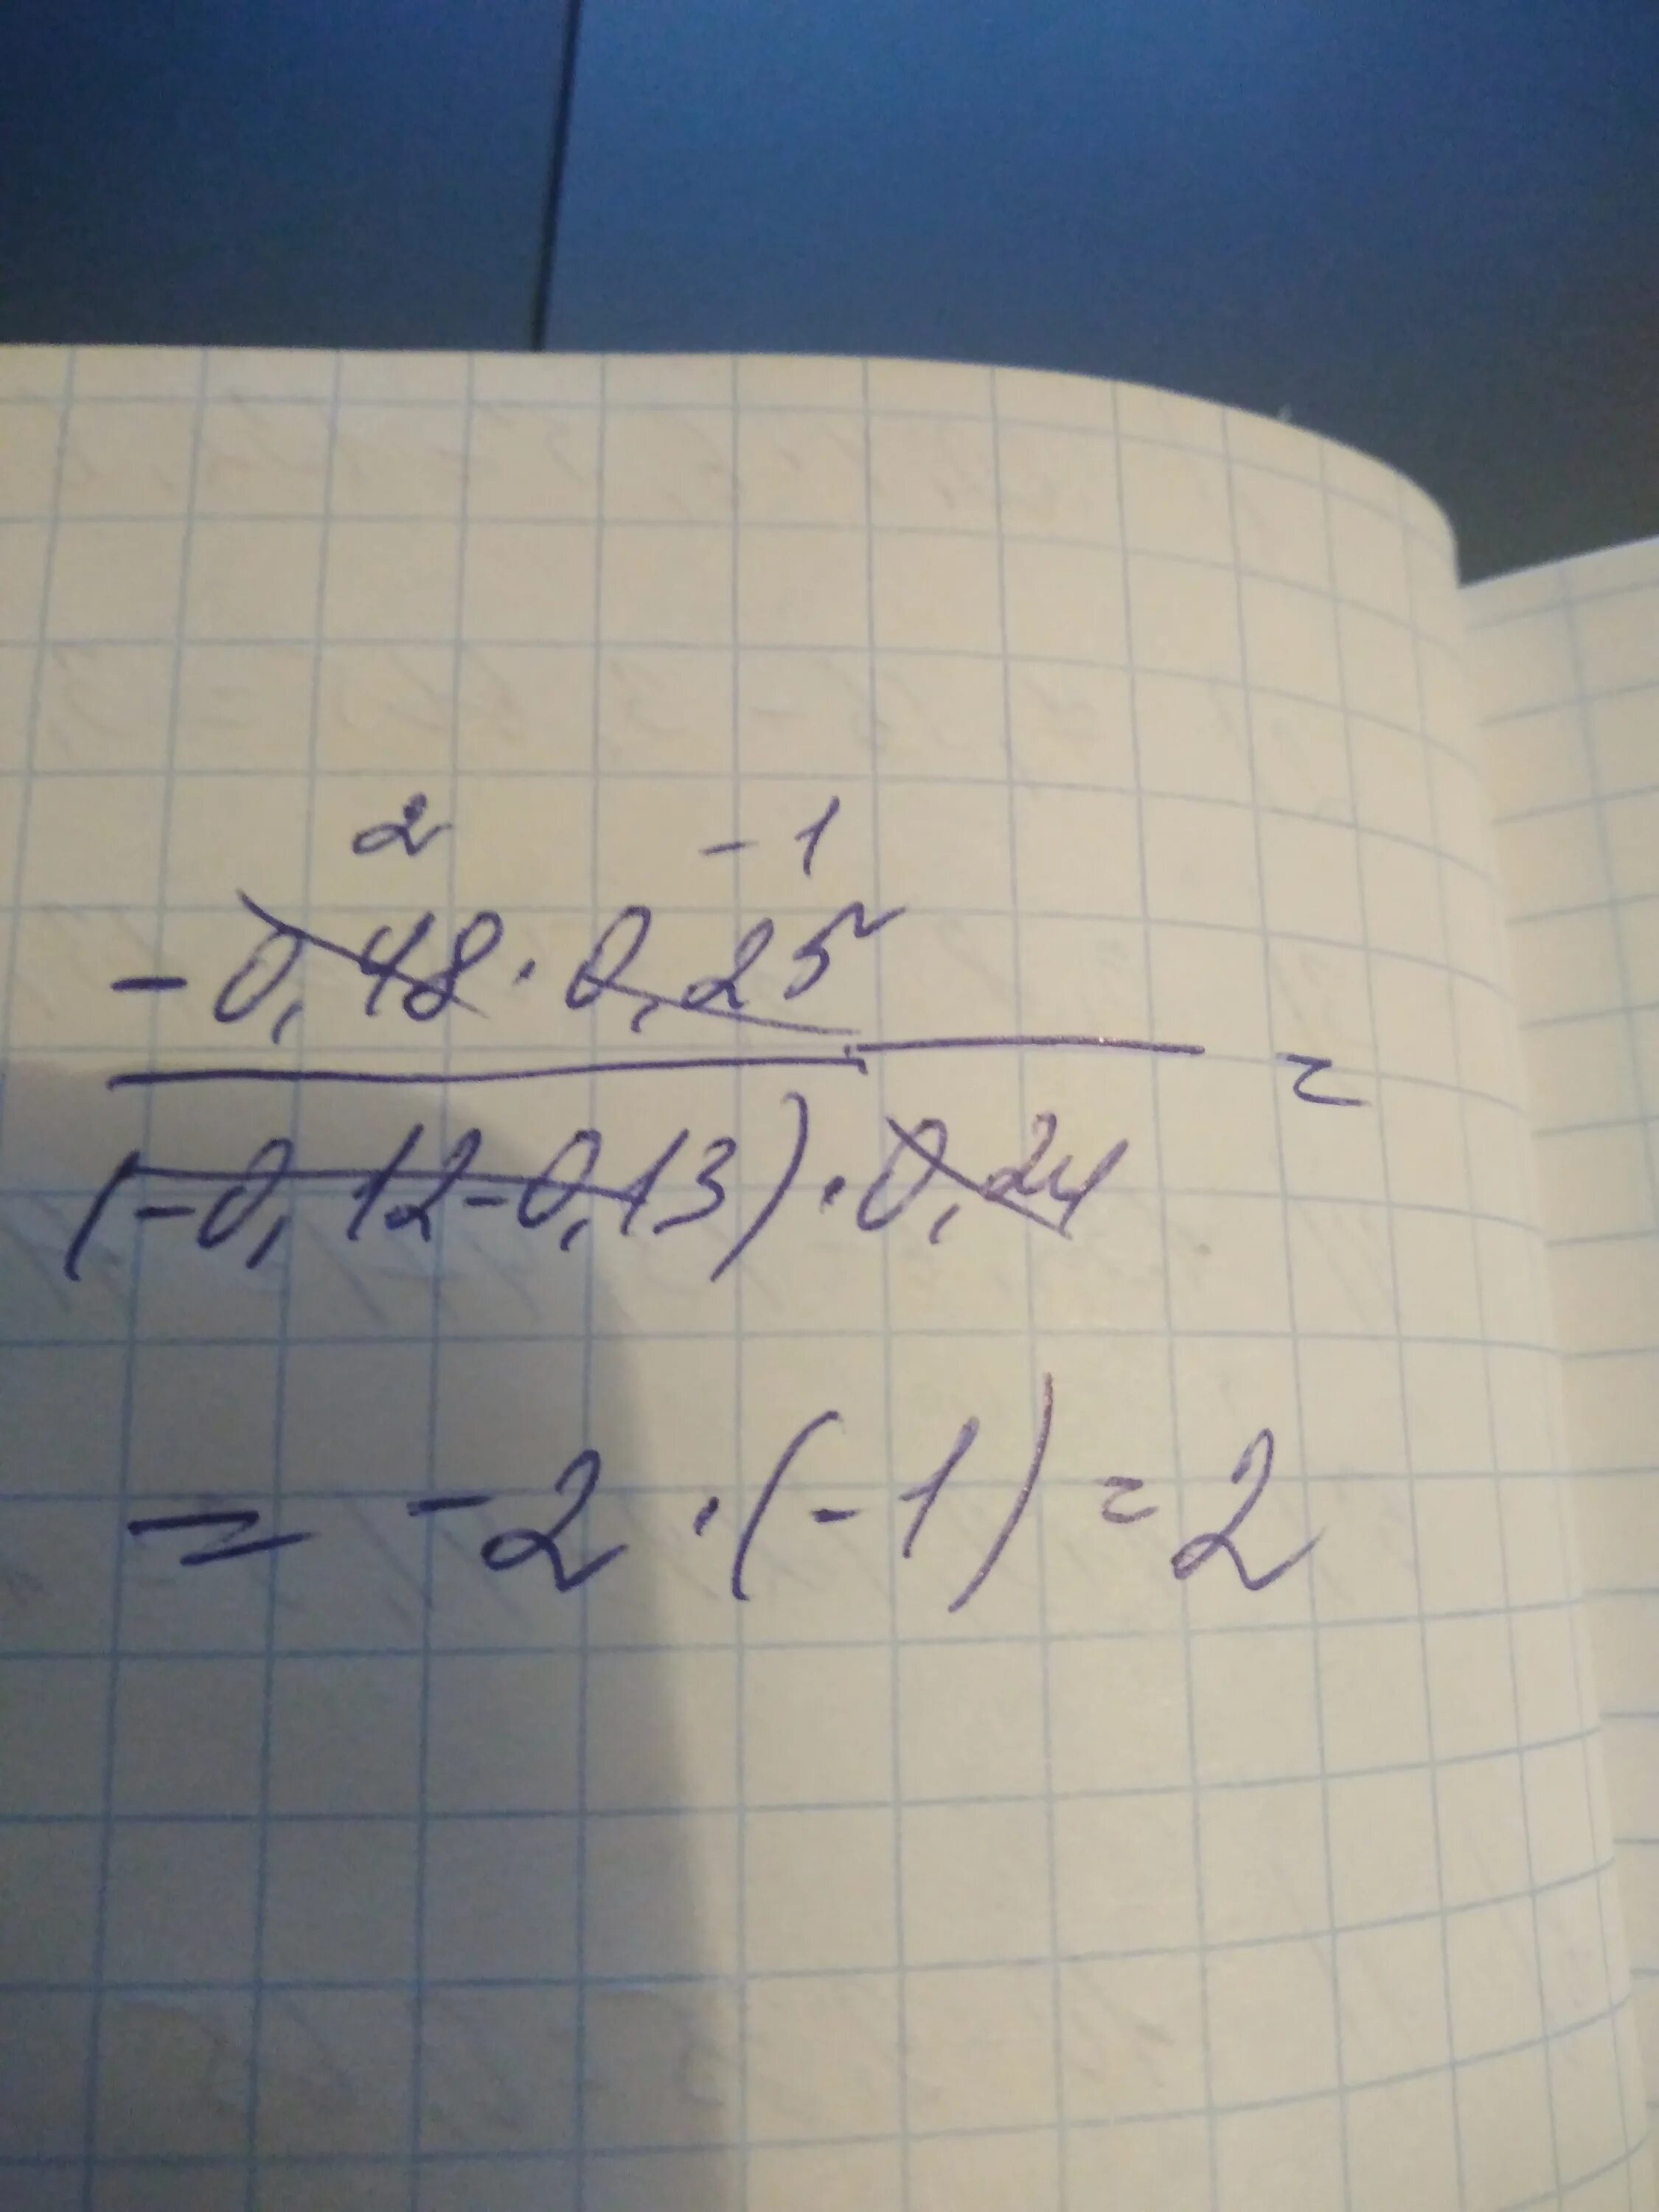 2 -1
-0,48·0,25
=
(-0,12-0,13)·0,24
= -2·(-1)=2